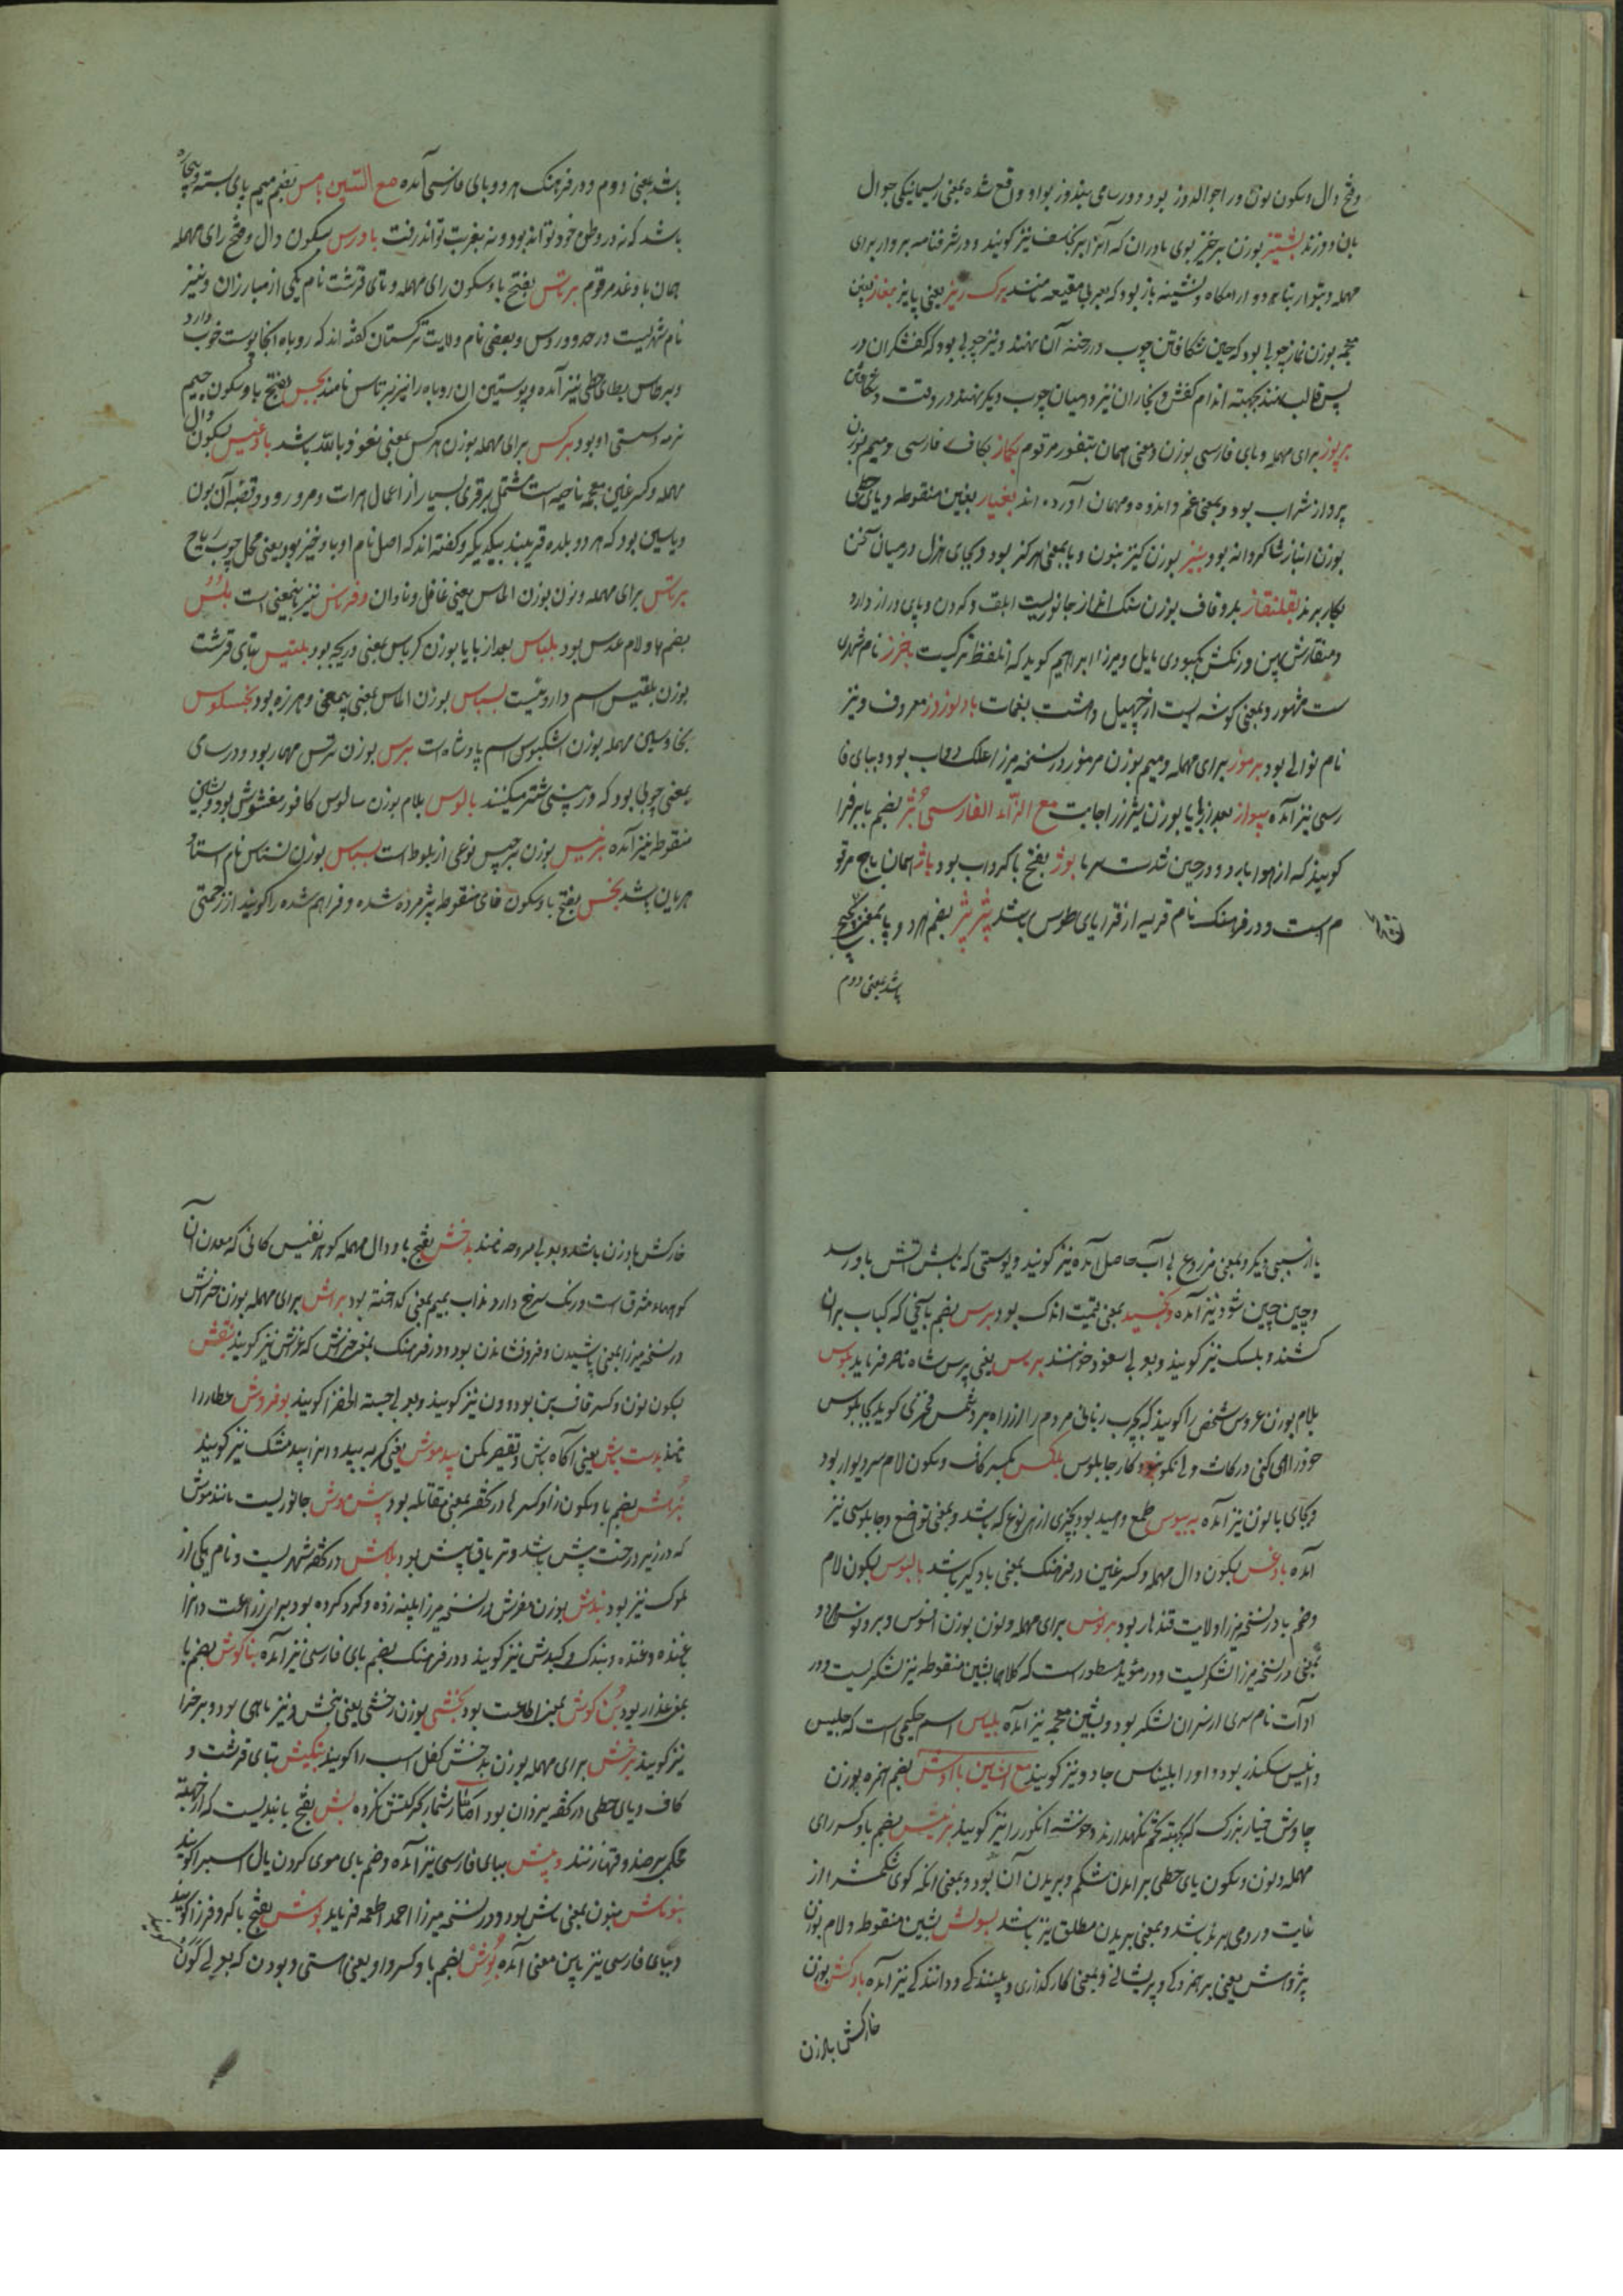 وفتح دال وسکون نون ور اجوالدوز بود ودر سامی بیندوز بواو واقع شده بمعنی ریسمانیکی جوال
بان دوزند بشتیز بوزن برخیز بوی مادران که آنرا برنجاسف نیز کویند ودر شرفنامه
مهمله
معجمه بوزن نماز چوبی بود که حین شکافتن چوب در رخنه آن نهند ونیز چوبی بود که کفشکران در
پس قالب نهند بجهته اندام کفش ونجاران نیز در میان چوب دیکر نهند در وقت
برپوز برای مهمله وبای فارسی بوزن ومعنی همان بتفوز مرقوم بکماز بکاف فارسی ومیم بوزن
پرواز شراب بود وبمعنی غم واندوه ومهمان آورده اند بغیاز بغین منقوطه ویای حطی
بوزن انباز شاکردانه بود بنیز بوزن کنیز بنون ویا بمعنی هرکز بود وبجای هزل در میان سخن
بکار برند بقلنقاز بلام وقاف بوزن سنک انداز جانوریست ابلق وکردن وپای دراز دارد
ومنقارش پهن ورنکش بکبودی مایل ومیرزا ابراهیم کوید که اتلفظ ترکیست باخرز نام شهری
ست مشهور وبمعنی کوشه ایست از چهل وهشت نغمات باد نوروز معروف ونیز
نام نوائی بود برموز برای مهمله ومیم بوزن مرموز در نسخه میرزا علک بود وببای فا
رسی نیز آمده بیواز بعد از با یا بوزن شیراز اجابت مع الزاء الفارسی بژ بضم با برفرا
کویند که از هوا بارد ودر حین شدت سرما بوژ بفتح با کرداب بود باژ همان باج مرقو
م است ودر فرهنک نام قریه از قرایای طوس باشد پژپژ بضم هردو پا بمعنی
باشد بمعنی دوم
باشد بمعنی دوم ودر فرهنک هردو ببای فارسی آمده مع السین بامس بضم میم پای بسته وبیچاره
باشد که نه در وطن خود تواند بود ونه بغربت تواند رفت بادرس بسکون دال وفتح رای مهمله
همان بادغد مرقوم برتاس بفتح با وسکون رای مهمله وتای قرشت نام یکی از مبارزان ونیز
نام شهریست در حدود روس وبعضی نام ولایت ترکستان کفته اند که روباه انجا پوست خوب دارد
وبرطاس بطای حطی نیز آمده وپوستین ان روباه را نیز برتاس نامند بجس بفتح با وسکون جیم
نرمه دستی او بود برکس برای مهمله بوزن هرکس بمعنی نعوذ بالله باشد بادغیس بسکون دال
مهمله وکسر غین معجمه ناحیه است مشتمل برقری بسیار از اعمال هرات ومرو رود وقصبه آن بون
وبامیین بود که هر دو بلده قریبند بیکدیکر وکفته اند که اصل نام او باد خیز بود یعنی محل چوب ریاح
برناس برای مهمله ونون بوزن الماس یعنی غافل ونادان وفرناس نیز باینمعنی است بلس
بضم با ولام عدس بود بلباس بعد از با یا بوزن کرباس بمعنی دریچه بود بلتیس بتای قرشت
بوزن بلقیس اسم داروئیست بسباس بوزن الماس بمعنی بیمعنی وهرزه بود بخسکوس
بخا وسین مهمله بوزن اشکبوس اسم پادشاه است برس بوزن ترس مهار بود ودر سامی
بمعنی چوبی بود که در بینی شتر میکنند بالوس بلام بوزن سالوس کافور مغشوش بود وبشین
منقوطه نیز آمده برنیس بوزن برجیس نوعی از بلوط است بسباس بوزن نسناس نام استاد
هریان باشد بخس بفتح با وسکون خای منقوطه پژمرده شده وفراهم شده را کویند از زحمتی
یا از سببی دیکر وبمعنی مزروع بی آب حاصل آمده نیز کویند وپوستی که تابش آتش باو رسد
وچین چین شود نیز آمده وبخسید بمعنی قیمت اندک بود برس بضم با سیخی که کباب بران
کشند وبلسک نیز کویند وبعربی سفود خوانند برساس یعنی پرس شاه ناصر فرماید بلوس
بلام بوزن عروس شخصی را کویند که بچرب زبانی مردم را از راه برد شمس فخری کوید
خوذرا می کنی درکات ولی نکو نبود کار چابلوس بلکس بکسر کاف وسکون لام سردیوار بود
وبجای با نون نیز آمده به بیوس طمع وامید بود بچیزی از هر نوع که باشد وبمعنی تواضع وچابلوسی نیز
آمده بادغس بسکون دال مهمله وکسر غین در فرهنک بمعنی بادکیر باشد بالیوس بسکون لام
وضم یا در نسخه میرزا ولایت قندهار بود برنوس برای مهمله ونون بوزن افسوس
بمعنی در نسخه میرزا لشکریست ودر مؤید مسطور است که کلاهما بشین منقوطه نیز لشکریست ودر
ادات نام سری از سران لشکر بود وبشین معجمه نیز آمده بلیاس اسم حکیمی است که جلیس
وانیس سکندر بود واورا بلیناس جادو نیز کویند مع الشین باآوش بضم همزه بوزن
چاوش خیار بزرک که بجهته تخم نکهدارند وخوشه انکور را نیز کویند برنیش بضم با وکسر رای
مهمله ونون وسکون یای حطی برامدن شکم وبریدن آن بود وبمعنی انکه کوی شکمش را از
غایت درد می برند باشد وبمعنی بریدن مطلق نیز باشد بسولش بشین منقوطه ولام بوزن
پژوهش یعنی برهم زدکی وپریشانی وبمعنی کارکذاری وبیننده کی ودانندکی نیز آمده بادکش بوزن
خارکش بادزن
خارکش بادزن باشد وبعربی مروحه نامند بدخش بفتح با ودال مهمله کوهر نفیس کانی که معدن آن
کوههاء مشرق است ورنک سرخ دارد مذاب بمیم بمعنی کداخته بود براش برای مهمله بوزن خراش
در نسخه میرزا بمعنی پاشیدن وفروفشاندن بود ودر فرهنک بمعنی خرش که خراش نیز کویند بنقش
بسکون نون وکسر قاف بن بود وون نیز کویند وبعربی حبة الخضرا کویند بوفروش عطار را
نامند بدست باش یعنی آکاه باش وتقصیر مکن بیدموش یعنی کربه بید وانرا بیدمشک نیز کویند
برهش بضم با وسکون را وکسر ها در تحفه بمعنی مقابله بود بیش موش جانوریست مانند موش
که در زیر درخت بیش باشد وتریاق بیش بود بلاش در تحفه شهریست ونام یکی از
ملوک نیز بود بندش بوزن مفرش در نسخه میرزا پنبه زده وکرد کرده بود برای رشتن وانرا
غنده وغنده وبندک وکندش نیز کویند ودر فرهنک بضم بای فارسی نیز آمده بناکوش بضم با
بمعنی عذار بود بن کوش بمعنی اطاعت بود بخشی بوزن رخشی یعنی بخش ونیز ماهی بود وبرخ را
نیز کویند برخش برای مهمله بوزن بدخش کفل اسب را کویند بتکیش بتای قرشت و
کاف ویای حطی در تحفه یزدان بود بش بفتح با بندیست که از جهته
محکمی بر صندوقها زنند وپش ببای فارسی نیز آمده وضم بای موی کردن یال اسب را کویند
بنوماش بنون بمعنی ماش بود ودر نسخه میرزا احمد اطعمه فرماید بوش بفتح با کروفر را کویند
وببای فارسی نیز باین معنی آمده بوش بضم با وکسر واو یعنی هستی وبودن که بعربی کون